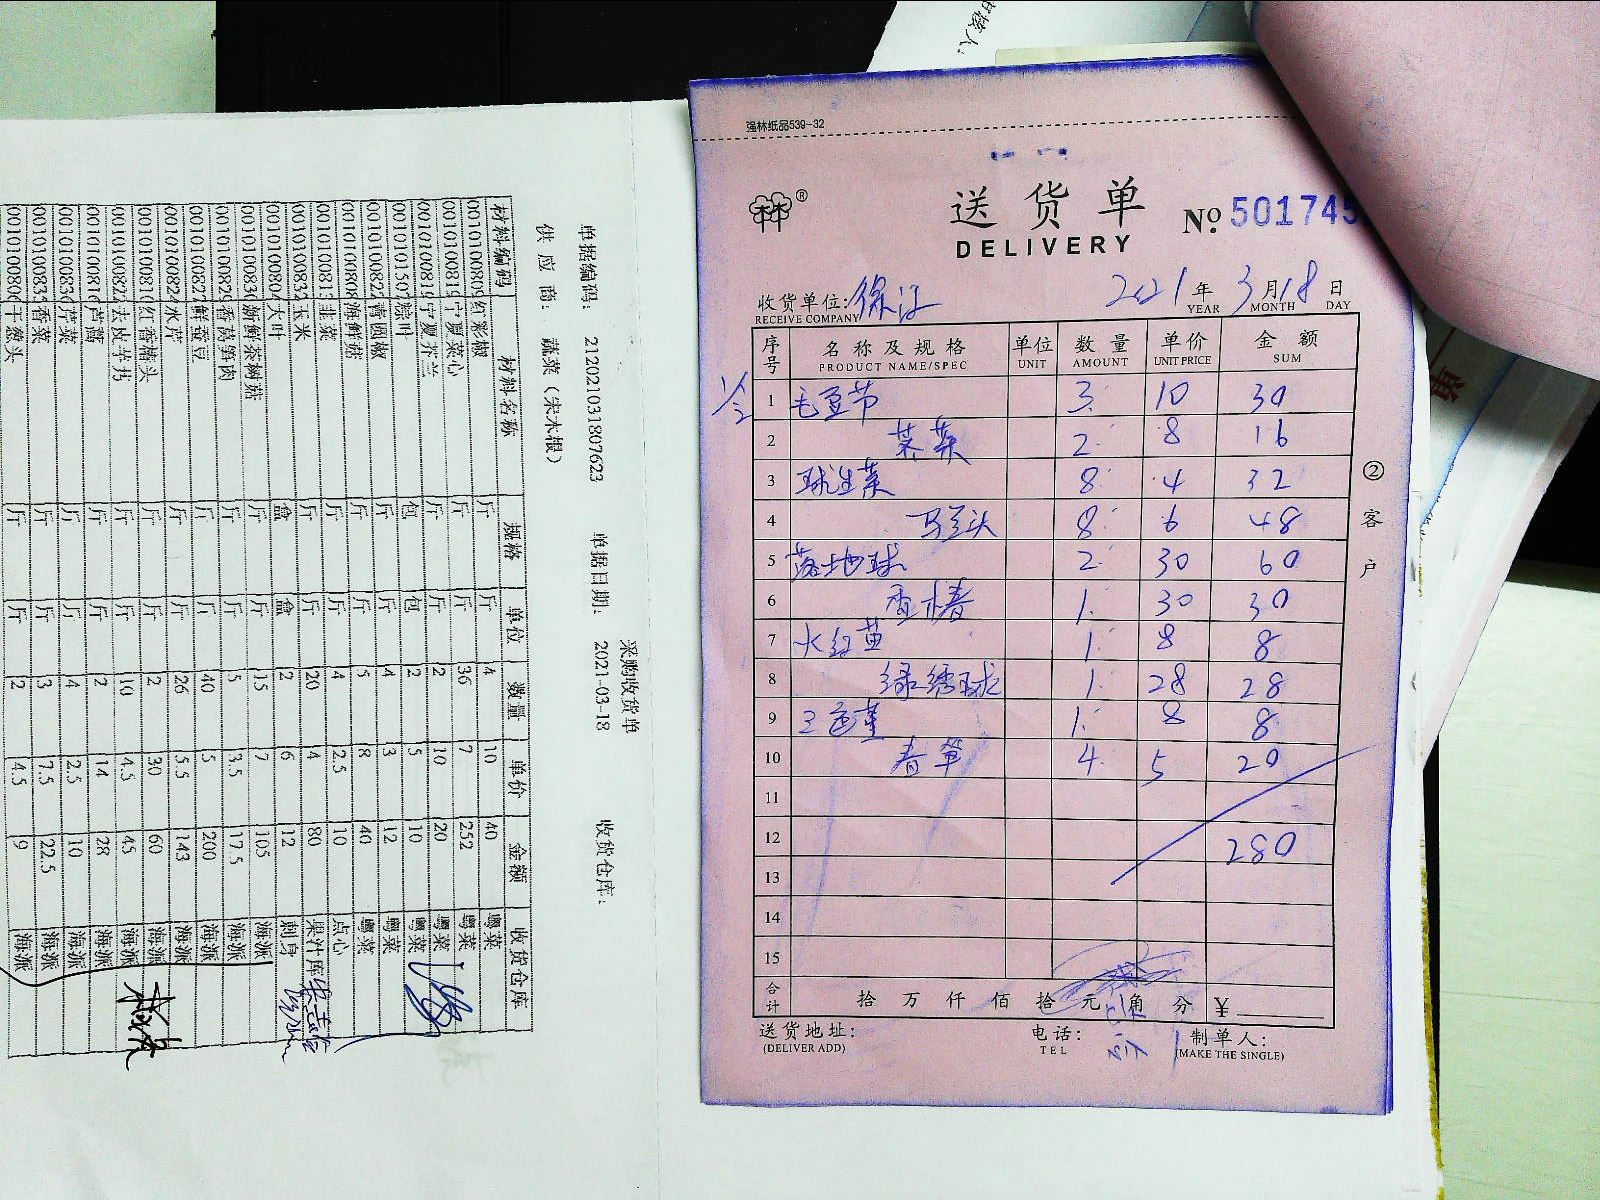 采购收货单
单据编码: 212021031807623 单据日期: 2021-03-18 收货仓库:
供 应 商: 蔬菜（宋木根）
材料编码 材料名称 规格 单位 数量 单价 金额 收货仓库
0010100809 红彩椒 斤 斤 4 10 40 粤菜
0010100813 宁夏菜心 斤 斤 36 7 252 粤菜
0010100819 宁夏芥兰 斤 斤 2 10 20 粤菜
0010101507 粽叶 包 包 2 5 10 粤菜
0010100822 青圆椒 斤 斤 4 3 12 粤菜
0010100808 海鲜菇 斤 斤 5 8 40 粤菜
0010100813 韭菜 斤 斤 4 2.5 10 点心
0010100832 玉米 斤 斤 20 4 80 果汁库
0010100804 大叶 盒 盒 2 6 12 刺身
0010100830 新鲜茶树菇 斤 斤 15 7 105 海派
0010100829 香莴笋肉 斤 斤 5 3.5 17.5 海派
0010100827 鲜蚕豆 斤 斤 40 5 200 海派
0010100824 水芹 斤 斤 26 5.5 143 海派
0010100810 红香椿头 斤 斤 2 30 60 海派
0010100822 去皮芋艿 斤 斤 10 4.5 45 海派
0010100816 芦蒿 斤 斤 2 14 28 海派
0010100836 芹菜 斤 斤 4 2.5 10 海派
0010100835 香菜 斤 斤 3 7.5 22.5 海派
0010100806 干葱头 斤 斤 2 4.5 9 海派
强林纸品539-32
林 ®
送货单 No. 501745
DELIVERY
收货单位: 2021年3月18日
RECEIVE COMPANY YEAR MONTH DAY
序号 名称及规格 单位 数量 单价 金额
PRODUCT NAME/SPEC UNIT AMOUNT UNIT PRICE SUM
1 毛豆节 3 10 30
2 荠菜 2 8 16
3 球生菜 8 4 32
4 马兰头 8 6 48
5 落地球 2 30 60
6 香椿 1 30 30
7 火红苗 1 8 8
8 绿绣球 1 28 28
9 三色堇 1 8 8
10 春草 4 5 20
11
12 280
13
14
15
合计 拾 万 仟 佰 拾 元 角 分 ￥
送货地址: 电话: 制单人:
(DELIVER ADD) TEL (MAKE THE SINGLE)
②客户